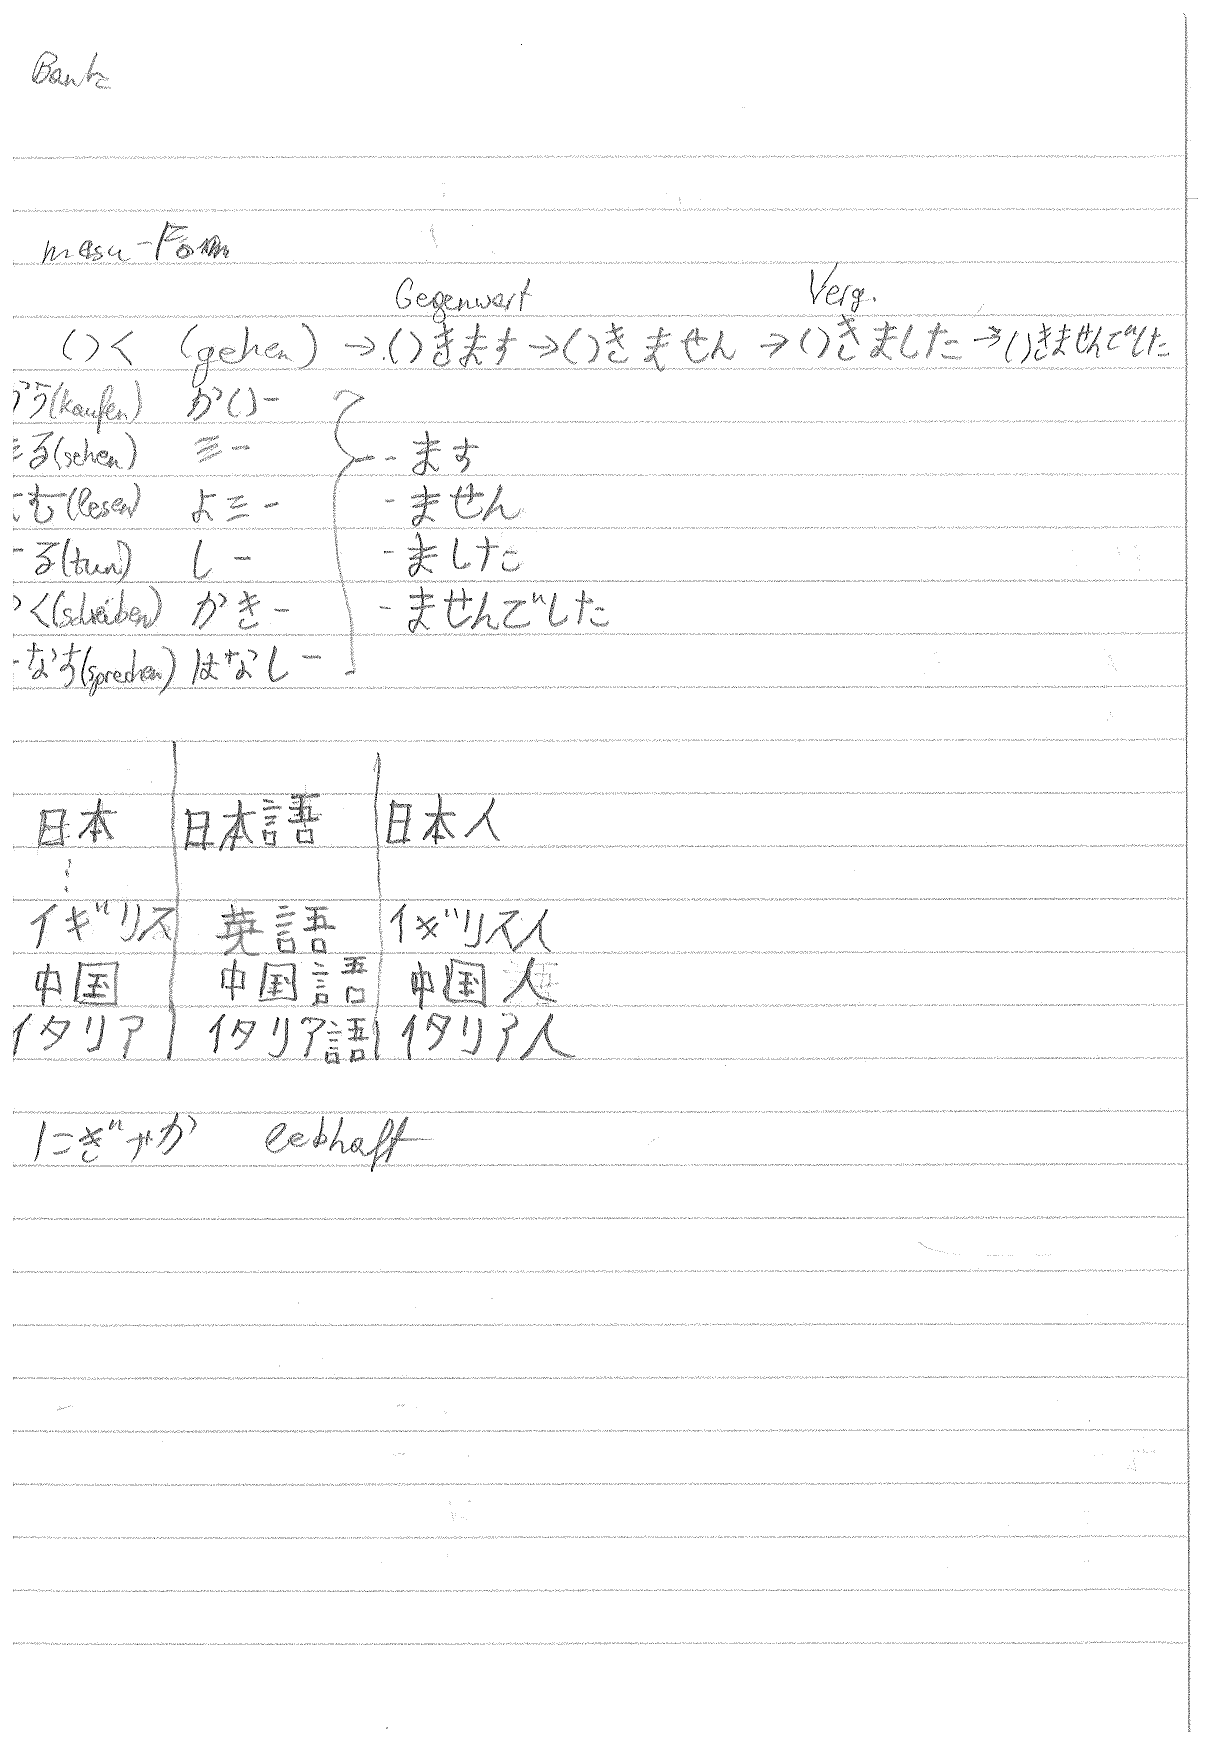 Bank
masu-Form
Gegenwart Verg.
いく (gehen) → いきます → いきません → いきました → いきませんでした
かう (kaufen) かい-
みる (sehen) ミー - ます
よむ (lesen) よミ - - ません
する (tun) し - - ました
かく (schreiben) かき - - ませんでした
はなす (sprechen) はなし -
日本 日本語 日本人
⋮
イギリス 英語 イギリス人
中国 中国語 中国人
イタリア イタリア語 イタリア人
にぎやか lebhaft